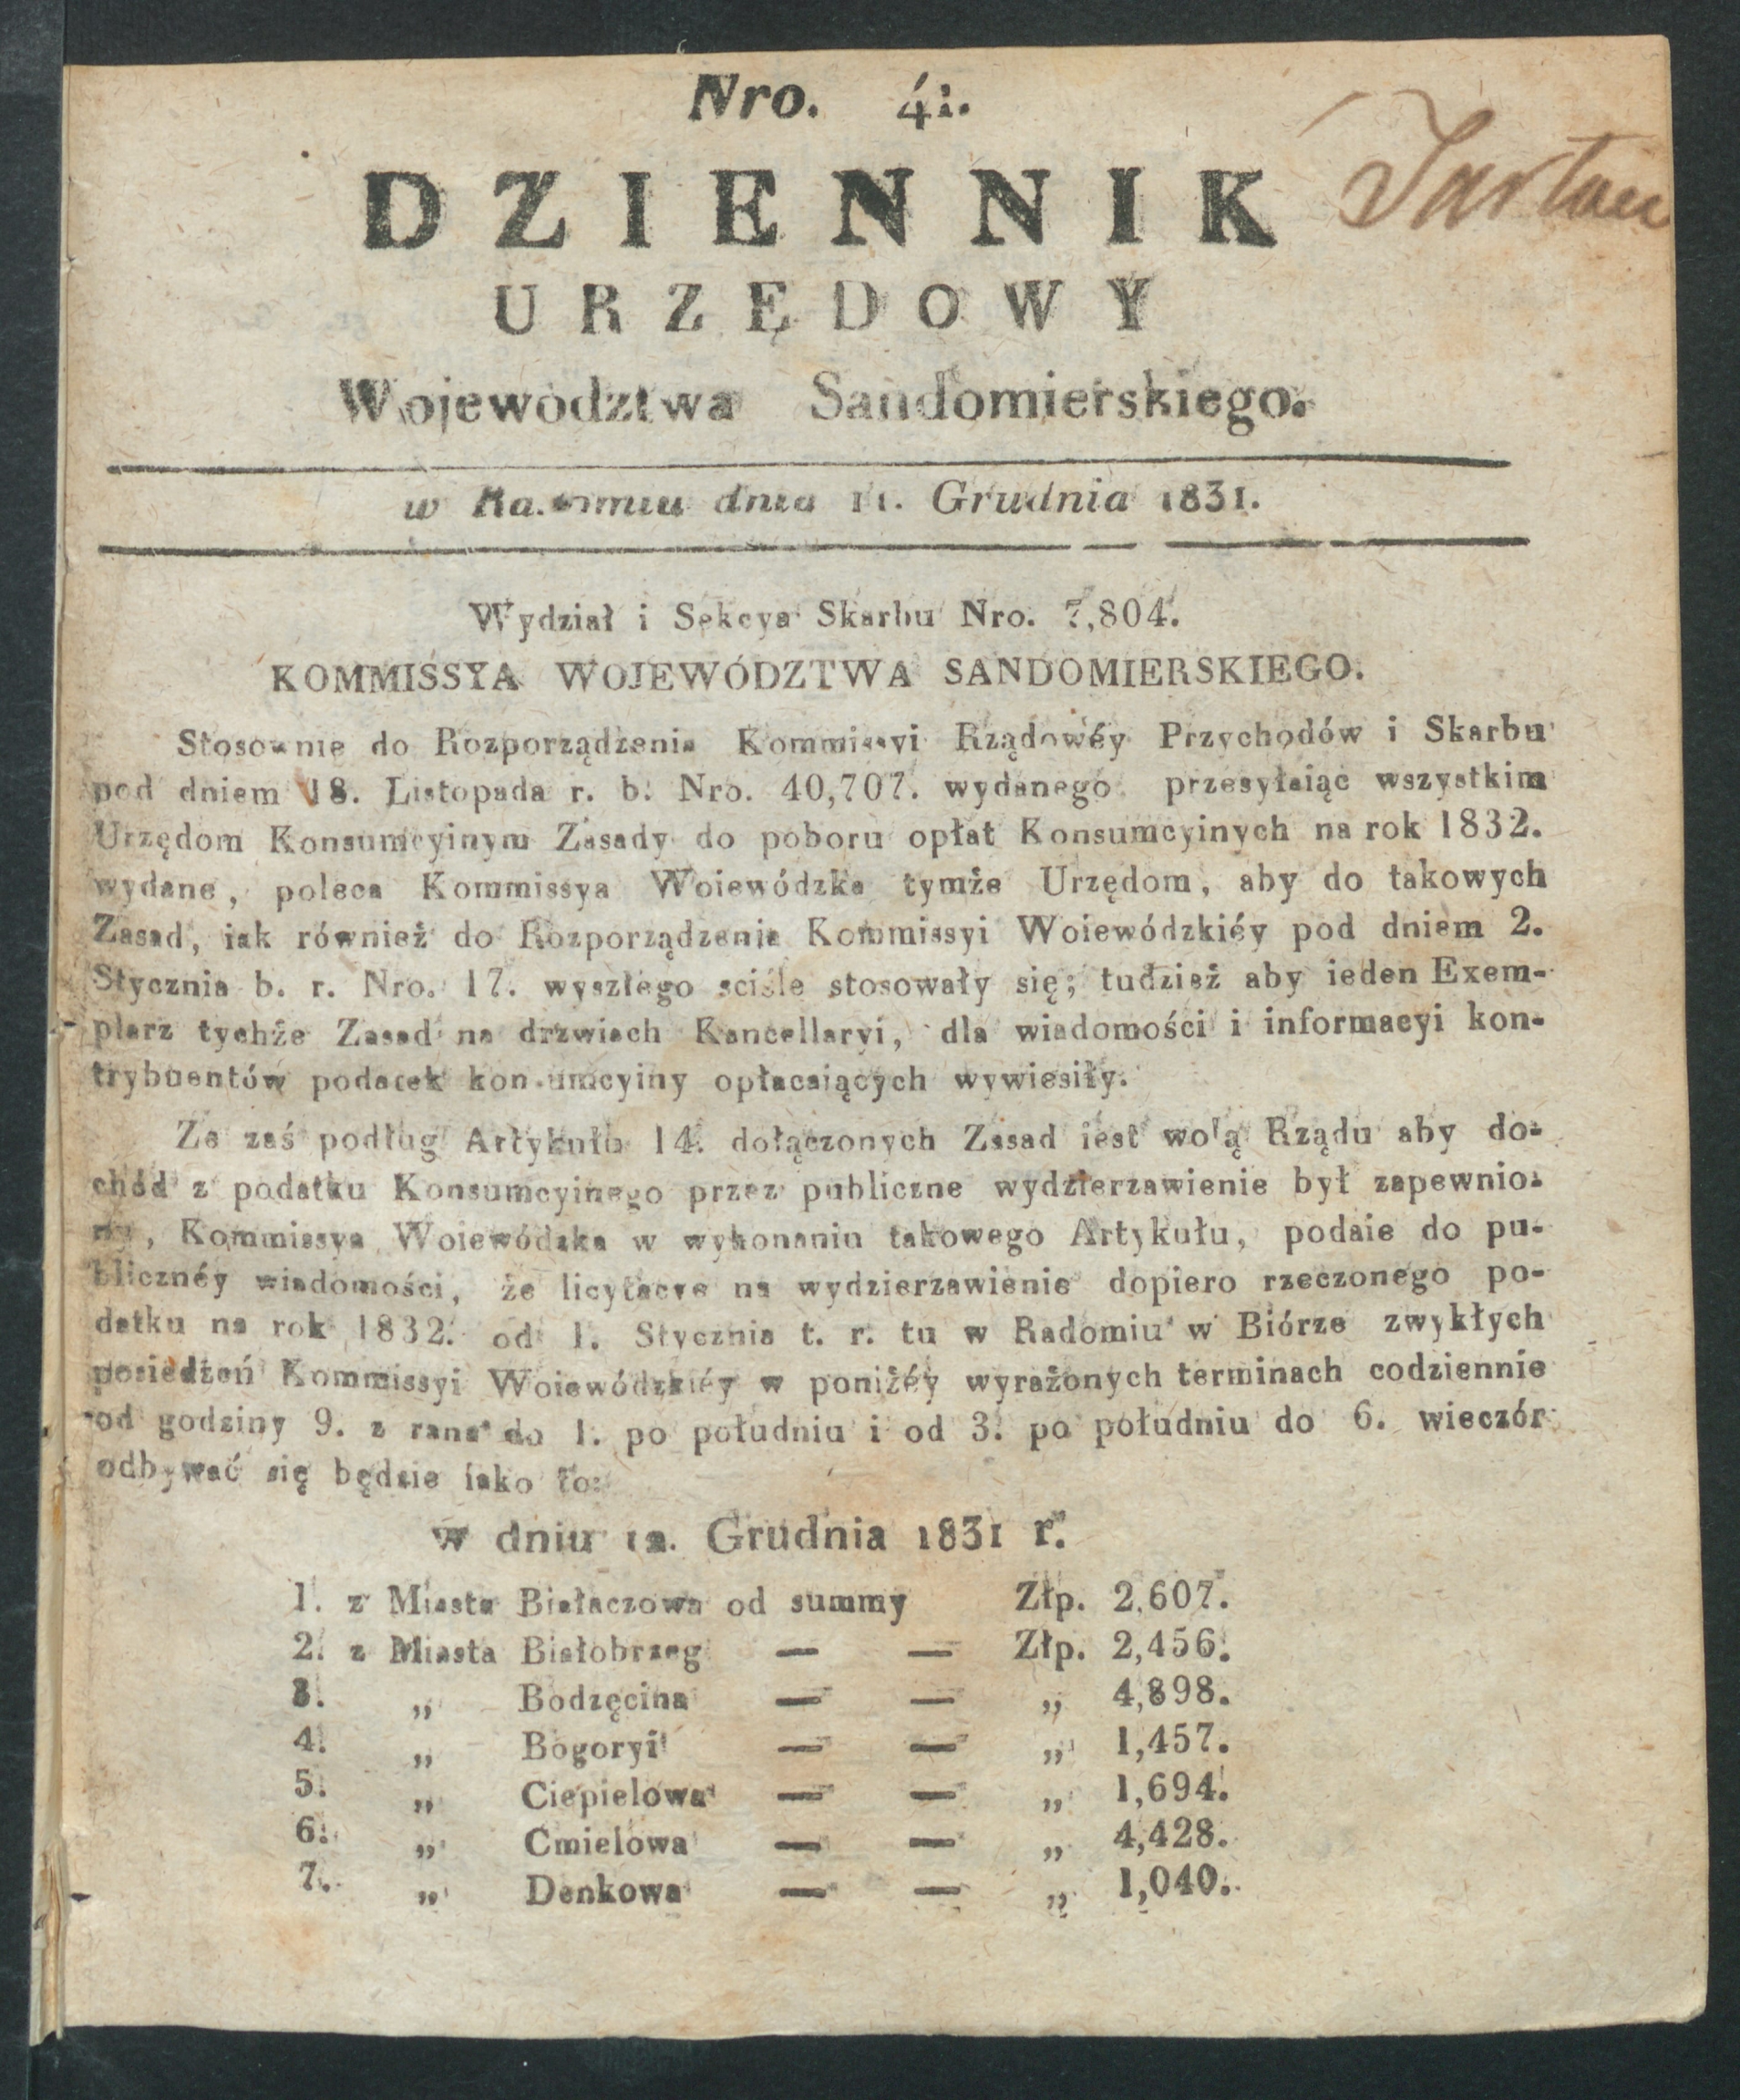 Nro. 41.
DZIENNIK
URZĘDOWY
Województwa Sandomierskiego.
w Radomiu dnia 11. Grudnia 1831.
Wydział i Sekcya Skarbu Nro. 7,804.
KOMMISSYA WOJEWÓDZTWA SANDOMIERSKIEGO.
Stosownie do Rozporządzenia Kommissyi Rządowéy Przychodów i Skarbu
pod dniem 18. Listopada r. b. Nro. 40,707. wydanego przesyłaiąc wszystkim
Urzędom Konsumcyinym Zasady do poboru opłat Konsumcyinych na rok 1832.
wydane, poleca Kommissya Woiewódzka tymże Urzędom, aby do takowych
Zasad, iak również do Rozporządzenia Kommissyi Woiewódzkiéy pod dniem 2.
Stycznia b. r. Nro. 17. wyszłego sciśle stosowały się; tudzież aby ieden Exem-
plarz tychże Zasad na drzwiach Kancellaryi, dla wiadomości i informacyi kon-
trybuentów podatek konsumcyiny opłacaiących wywiesiły.
Ze zaś podług Artykułu 14. dołączonych Zasad iest wolą Rządu aby do-
chód z podatku Konsumcyinego przez publiczne wydzierzawienie był zapewnio-
ny, Kommissya Woiewódzka w wykonaniu takowego Artykułu, podaie do pu-
blicznéy wiadomości, że licytacye na wydzierzawienie dopiero rzeczonego po-
datku na rok 1832. od 1. Stycznia t. r. tu w Radomiu w Biórze zwykłych
posiedzeń Kommissyi Woiewódzkiéy w poniżéy wyrażonych terminach codziennie
od godziny 9. z rana do 1. po południu i od 3. po południu do 6. wieczór
odbywać się będzie iako to:
w dniu 12. Grudnia 1831 r.
1. z Miasta Białaczowa od summy Złp. 2,607.
2. z Miasta Białobrzeg — — Złp. 2,456.
3. „ Bodzęcina — — „ 4,898.
4. „ Bogoryi — — „ 1,457.
5. „ Ciepielowa — — „ 1,694.
6. „ Cmielowa — — „ 4,428.
7. „ Denkowa — — „ 1,040.